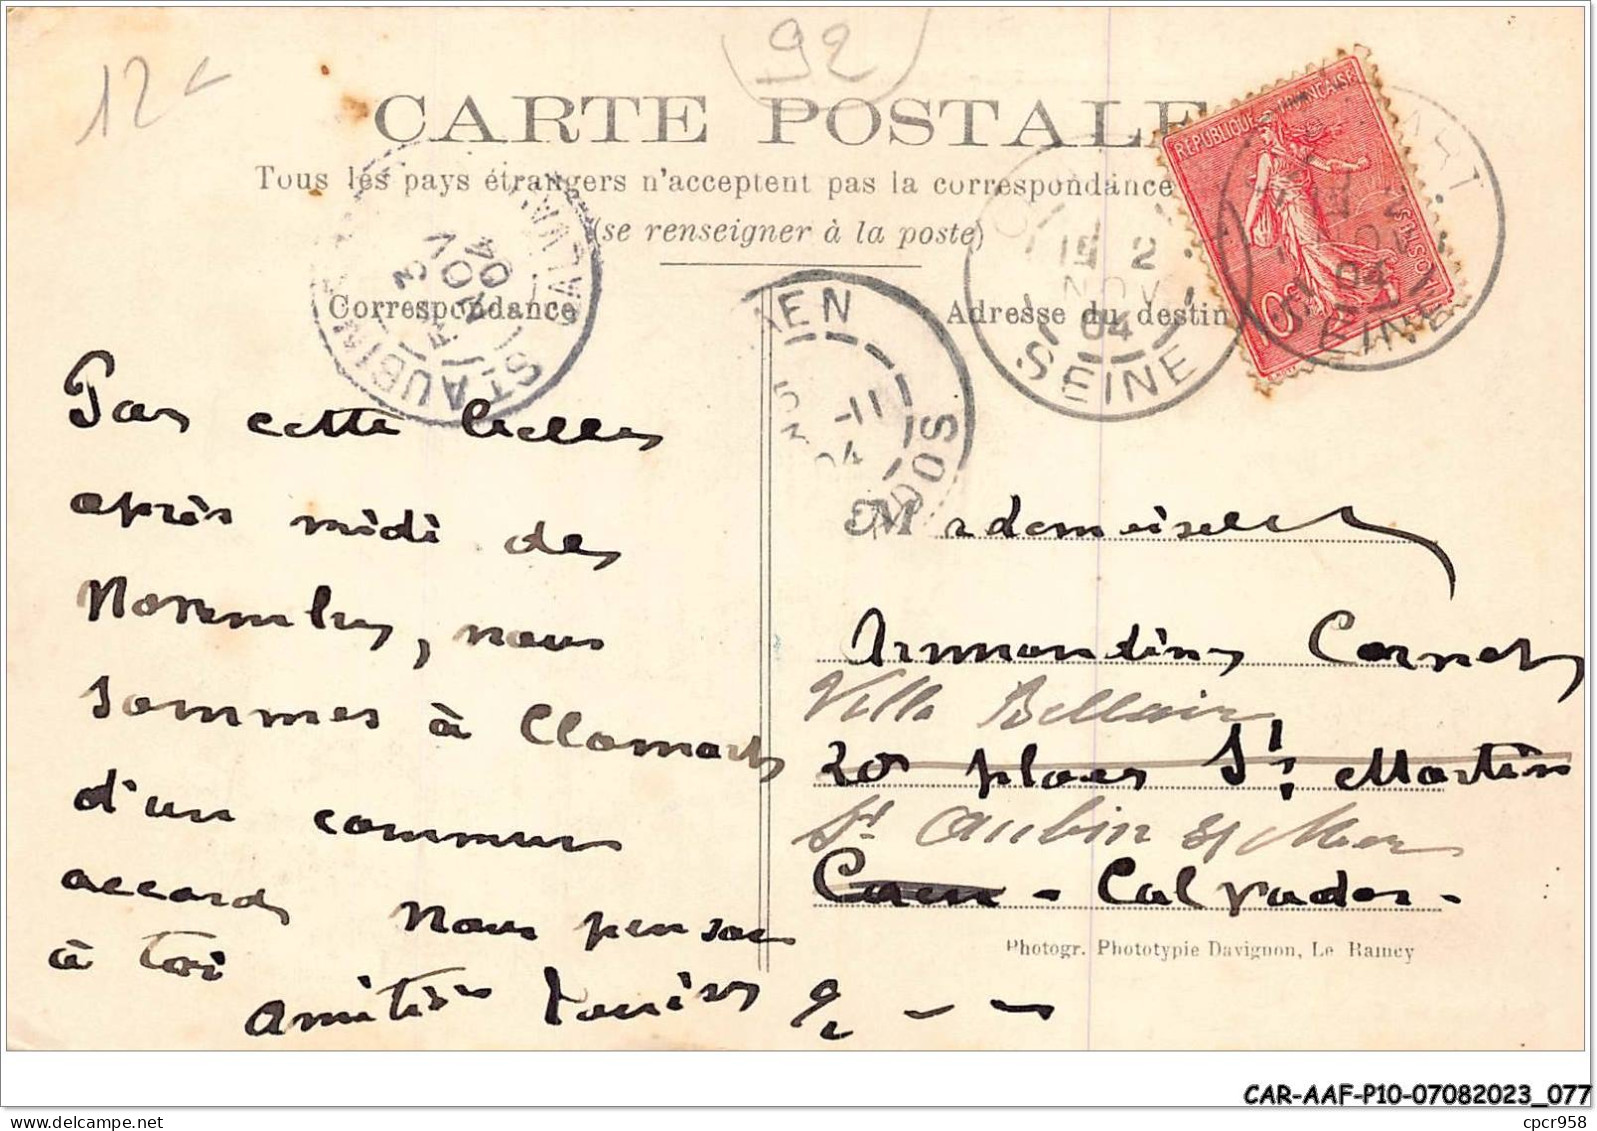 12
92
CARTE POSTALE
Tous les pays étrangers n'acceptent pas la correspondance
(se renseigner à la poste)
Correspondance
Adresse du destin
RÉPUBLIQUE FRANÇAISE
POSTES
10
ST AUBIN
3 NOV 04
CAEN
5 -11 04
15 2 NOV 04
SEINE
Par cette belle
après midi de
Novembre, nous
sommes à Clamart
d'un commun
accord nous pensons
à toi
amitiés Louise
Mademoiselle
Armandine Cornet
Villa Bellair
20 place St Martin
St Aubin s/ Mer
Caen - Calvados -
Photogr. Phototypie Davignon, Le Raincy
CAR-AAF-P10-07082023_077
delcampe.net
cpcr958